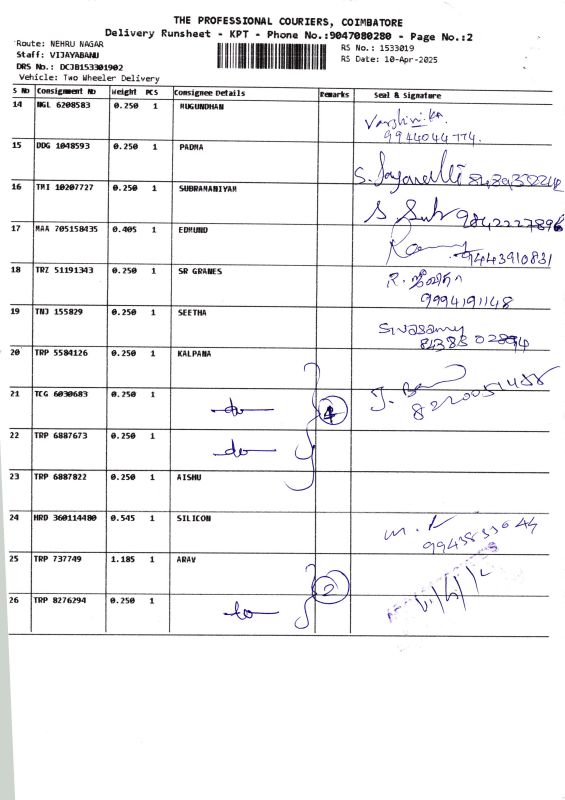 THE PROFESSIONAL COURIERS, COIMBATORE
Delivery Runsheet - KPT - Phone No.:9047080280 - Page No.:2
Route: NEHRU NAGAR
Staff: VIJAYABANU
DRS No.: DCJB153301902
Vehicle: Two Wheeler Delivery
RS No.: 1533019
RS Date: 10-Apr-2025
S No Consignment No Weight PCS Consignee Details Remarks Seal & Signature
14 NGL 6208583 0.250 1 MUGUNDHAN
Varshini.
9944044774.
15 DDG 1048593 0.250 1 PADMA
S.
16 TMI 10207727 0.250 1 SUBRAMANIYAM
S
17 MAA 705158435 0.405 1 EDMUND
9443910831
18 TRZ 51191343 0.250 1 SR GRANES
R.
9994191148
19 TNJ 155829 0.250 1 SEETHA
Sivasamy
20 TRP 5584126 0.250 1 KALPANA
21 TCG 6030683 0.250 1 do 4
J.
22 TRP 6887673 0.250 1 do
23 TRP 6887822 0.250 1 AISHU
24 HRD 360114480 0.545 1 SILICON
25 TRP 737749 1.185 1 ARAV
2
26 TRP 8276294 0.250 1 do